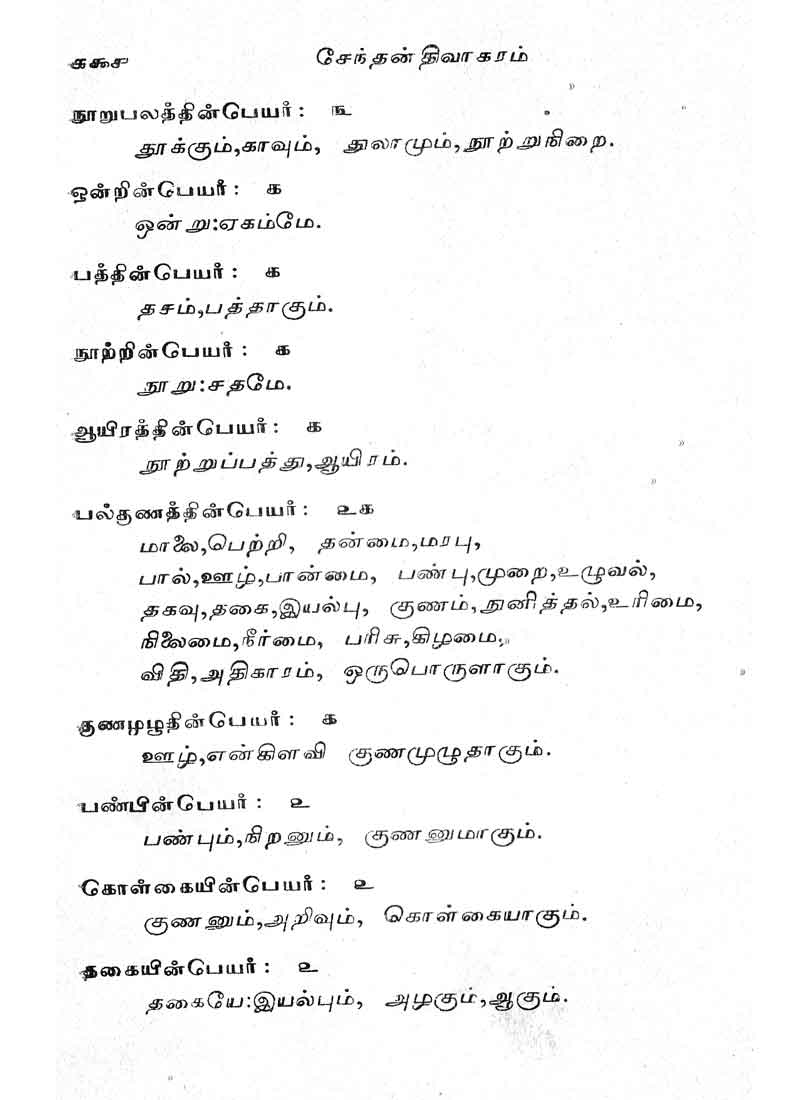 ௧௬௪ சேந்தன் திவாகரம்
நூறுபலத்தின்பெயர் : ௩
தூக்கும்,காவும், துலாமும்,நூற்றுநிறை.
ஒன்றின்பெயர் : ௧
ஒன்று:ஏகம்மே.
பத்தின்பெயர் : ௧
தசம்,பத்தாகும்.
நூற்றின்பெயர் : ௧
நூறு:சதமே.
ஆயிரத்தின்பெயர் : ௧
நூற்றுப்பத்து,ஆயிரம்.
பல்குணத்தின்பெயர் : ௨௧
மாலை,பெற்றி, தன்மை,மரபு,
பால்,ஊழ்,பான்மை, பண்பு,முறை,உழுவல்,
தகவு,தகை,இயல்பு, குணம்,நுனித்தல்,உரிமை,
நிலைமை,நீர்மை, பரிசு,கிழமை,
விதி,அதிகாரம், ஒருபொருளாகும்.
குணமுழுதின்பெயர் : ௧
ஊழ்,என்கிளவி குணமுழுதாகும்.
பண்பின்பெயர் : ௨
பண்பும்,நிறனும், குணனுமாகும்.
கொள்கையின்பெயர் : ௨
குணனும்,அறிவும், கொள்கையாகும்.
தகையின்பெயர் : ௨
தகையே:இயல்பும், அழகும்,ஆகும்.